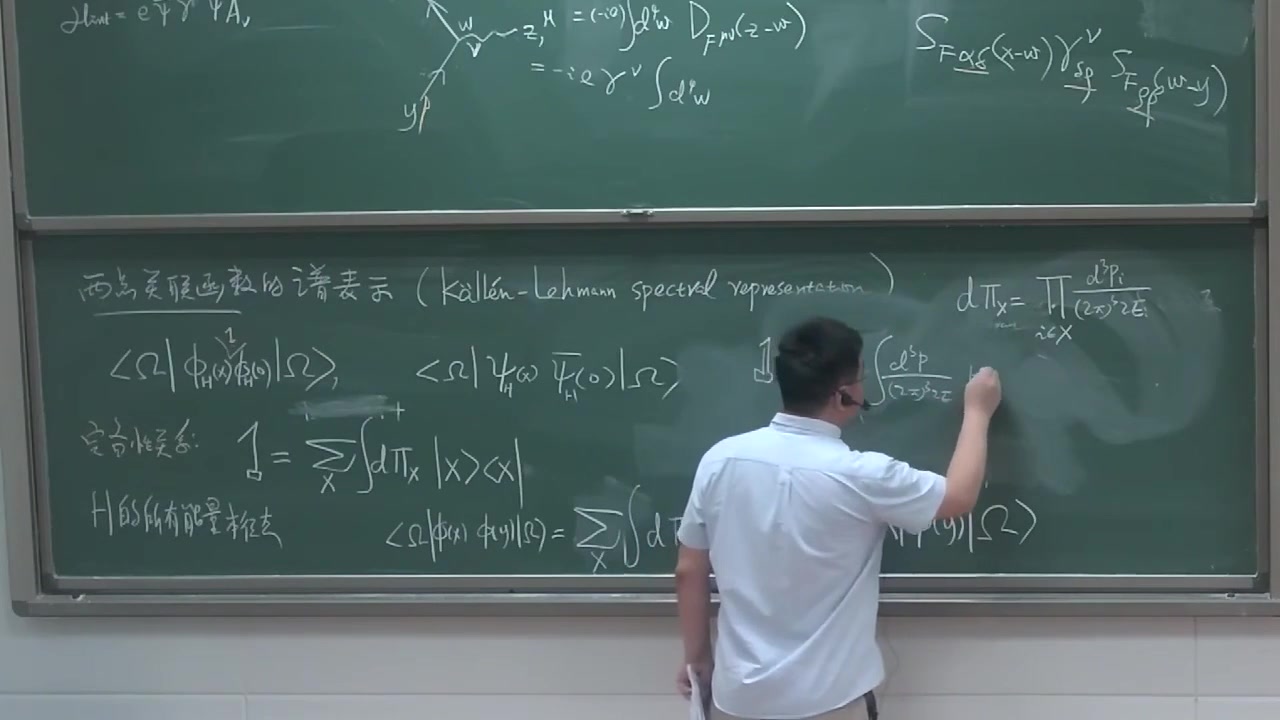 ℒ_int = e ψ̄ γ^ν ψ A_ν
w
ν
z, μ = (-ie) ∫d⁴w D_{Fμν}(z-w)
= -ie γ^ν ∫d⁴w
y, β
S_{Fαδ}(x-w) γ^ν_{δρ} S_{Fρβ}(w-y)
两点关联函数的谱表示 (Källén-Lehmann spectral representation)
dΠ_X = ∏_{i∈X} d³p_i/((2π)³2E_i)
1
⟨Ω| ϕ_H(x) ϕ_H(0) |Ω⟩,
⟨Ω| ψ_H(x) ψ̄_H(0) |Ω⟩
1
∫ d³p/((2π)³2E)
完备性关系: 1 = ∑_X ∫dΠ_X |X⟩⟨X|
H的所有能量本征态
⟨Ω|ϕ(x) ϕ(y)|Ω⟩ = ∑_X ∫dΠ
ϕ(y)|Ω⟩